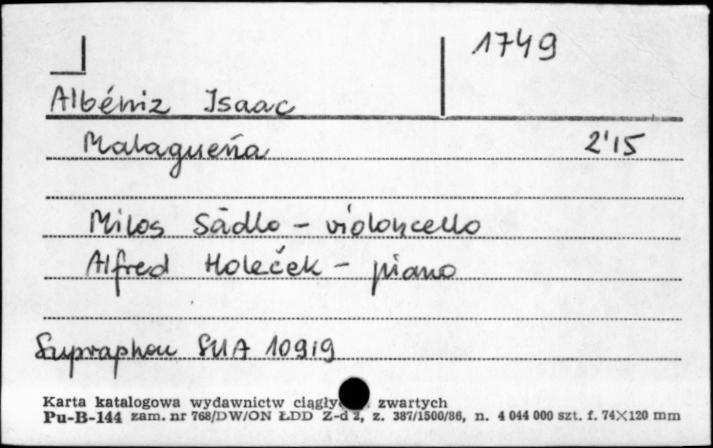 1749
Albéniz Isaac
Malagueña 2'15
Milos Sádlo - violoncello
Alfred Holeček - piano
Supraphon SUA 10919
Karta katalogowa wydawnictw ciągły zwartych
Pu-B-144 zam. nr 768/DW/ON ŁDD Z-d 2, z. 387/1500/86, n. 4 044 000 szt. f. 74×120 mm